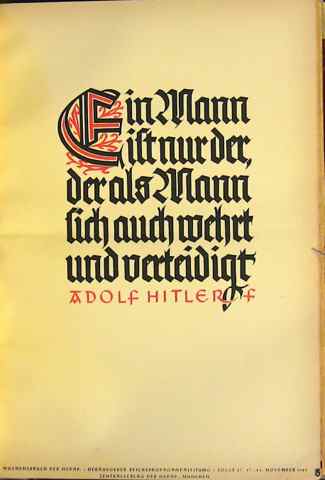 Ein Mann
ist nur der,
der als Mann
sich auch wehrt
und verteidigt
ADOLF HITLER
WOCHENSPRUCH DER NSDAP · HERAUSGEBER REICHSPROPAGANDALEITUNG · FOLGE NOVEMBER
ZENTRALVERLAG DER NSDAP. MÜNCHEN